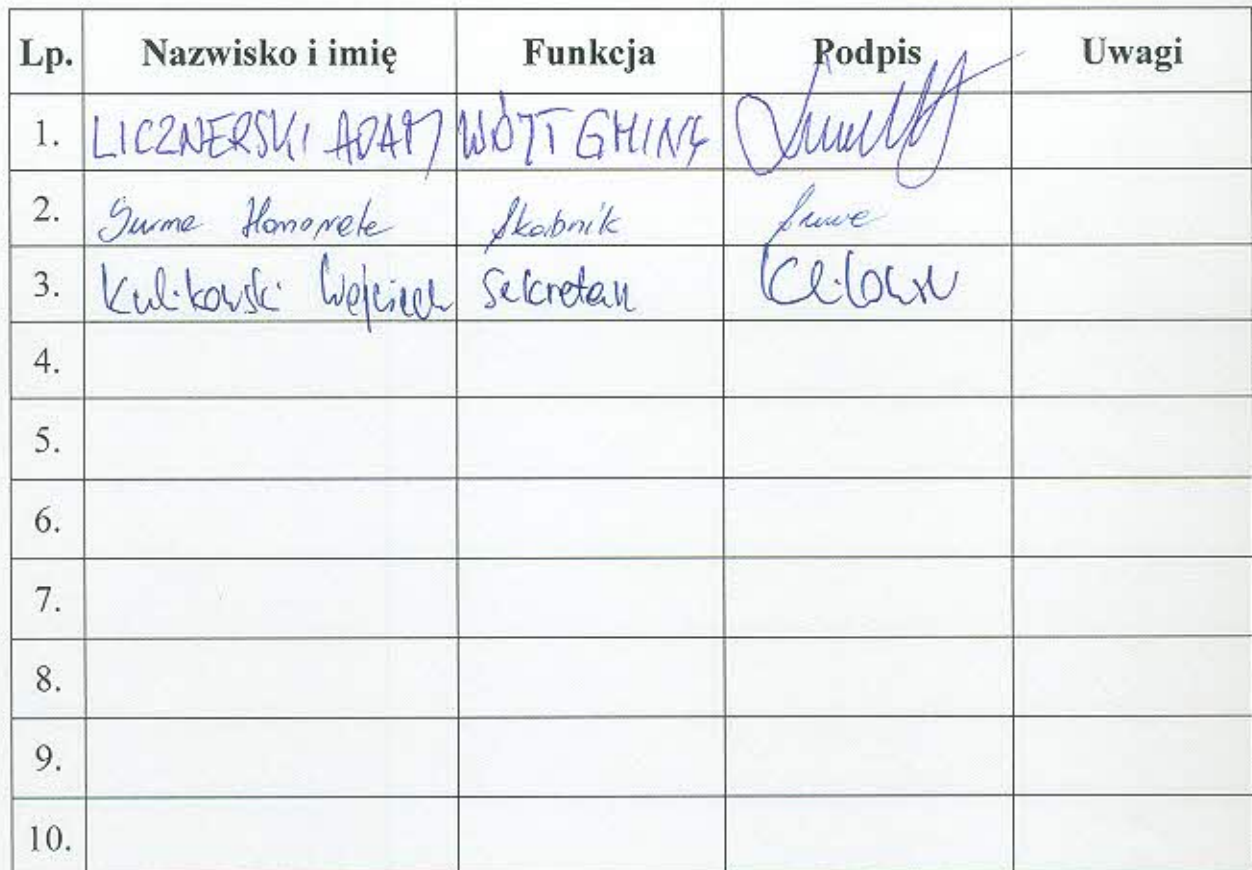 Lp. Nazwisko i imię Funkcja Podpis Uwagi
1. LICZNERSKI ADAM WÓJT GMINY
2. Skarbnik
3. Kulikowski Wojciech Sekretarz
4.
5.
6.
7.
8.
9.
10.